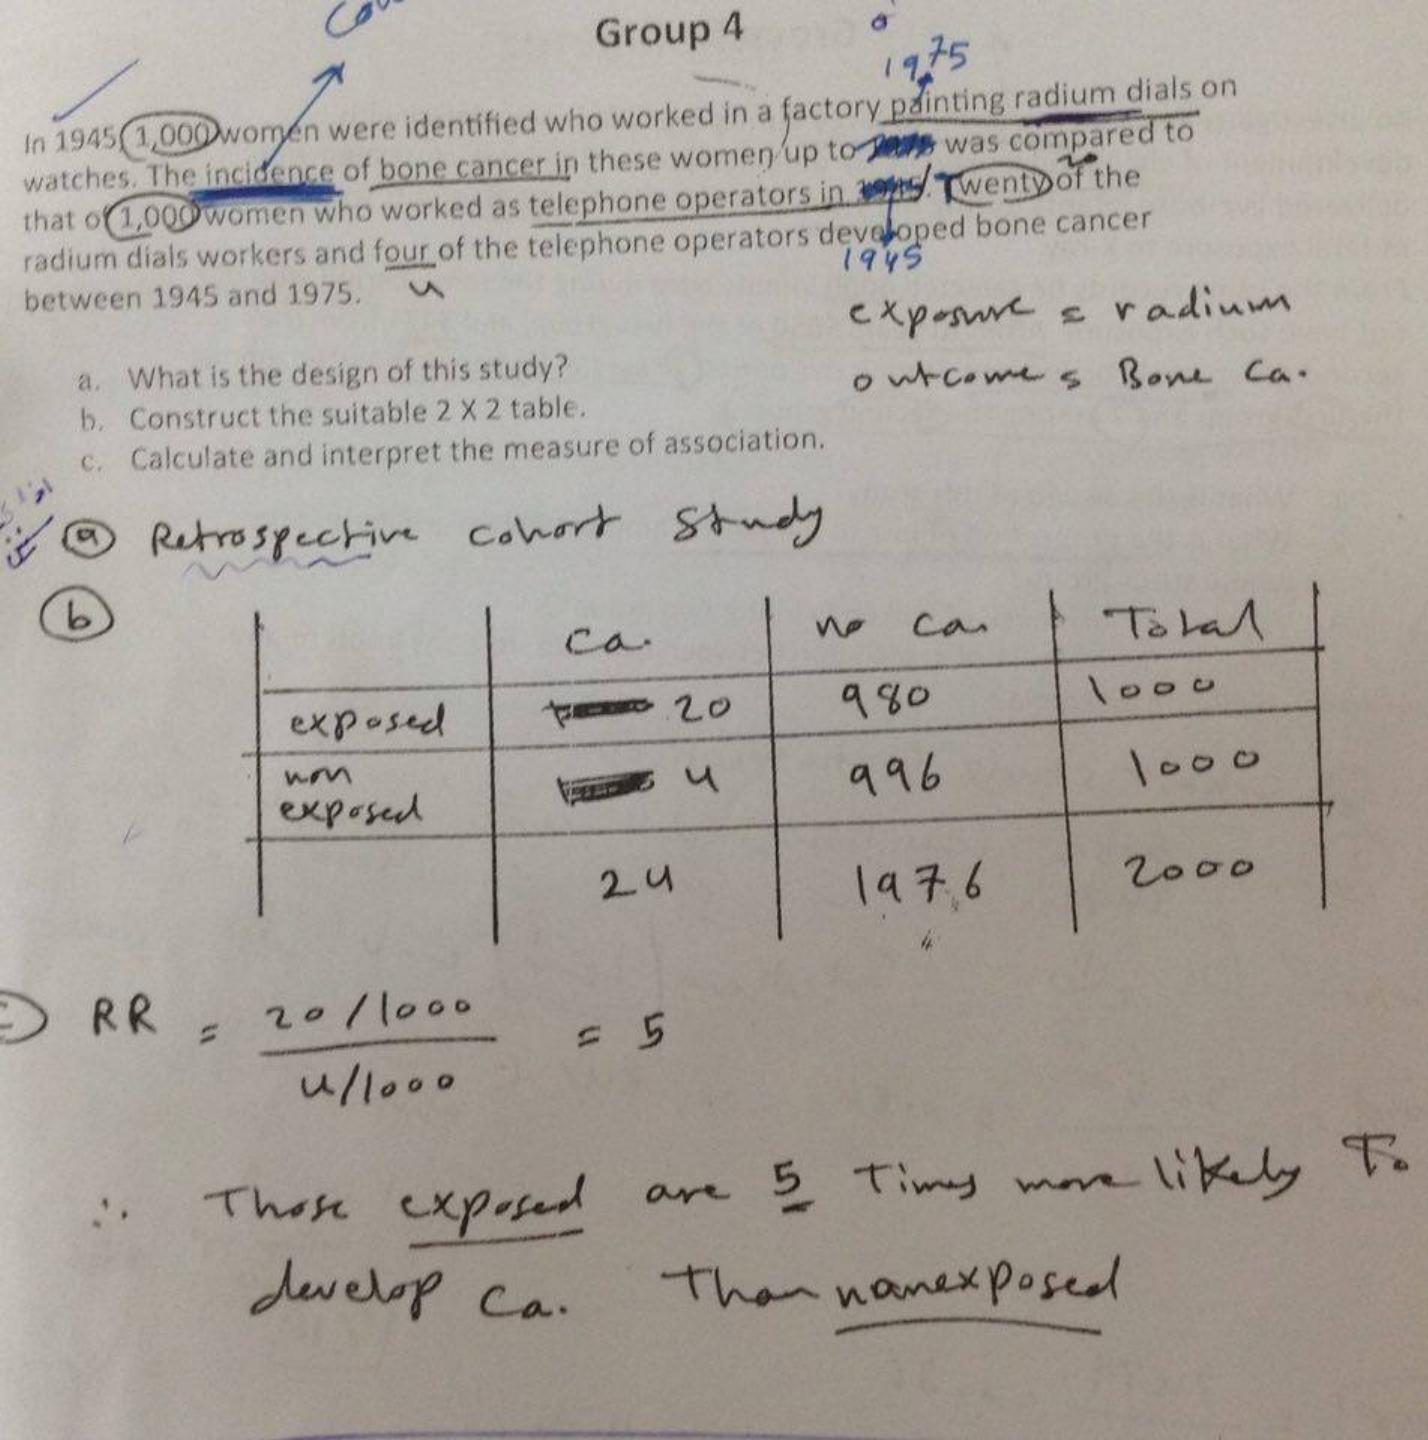 Group 4
1975
In 1945 1,000 women were identified who worked in a factory painting radium dials on
watches. The incidence of bone cancer in these women up to was compared to
that of 1,000 women who worked as telephone operators in . Twenty of the
radium dials workers and four of the telephone operators developed bone cancer
1945
between 1945 and 1975. 4
exposure = radium
outcome = Bone Ca.
a. What is the design of this study?
b. Construct the suitable 2 X 2 table.
c. Calculate and interpret the measure of association.
a Retrospective cohort study
b
ca. no ca. Total
exposed 20 980 1000
non exposed 4 996 1000
24 1976 2000
c RR = 20/1000 = 5
4/1000
∴ Those exposed are 5 Times more likely To
develop Ca. Than nonexposed